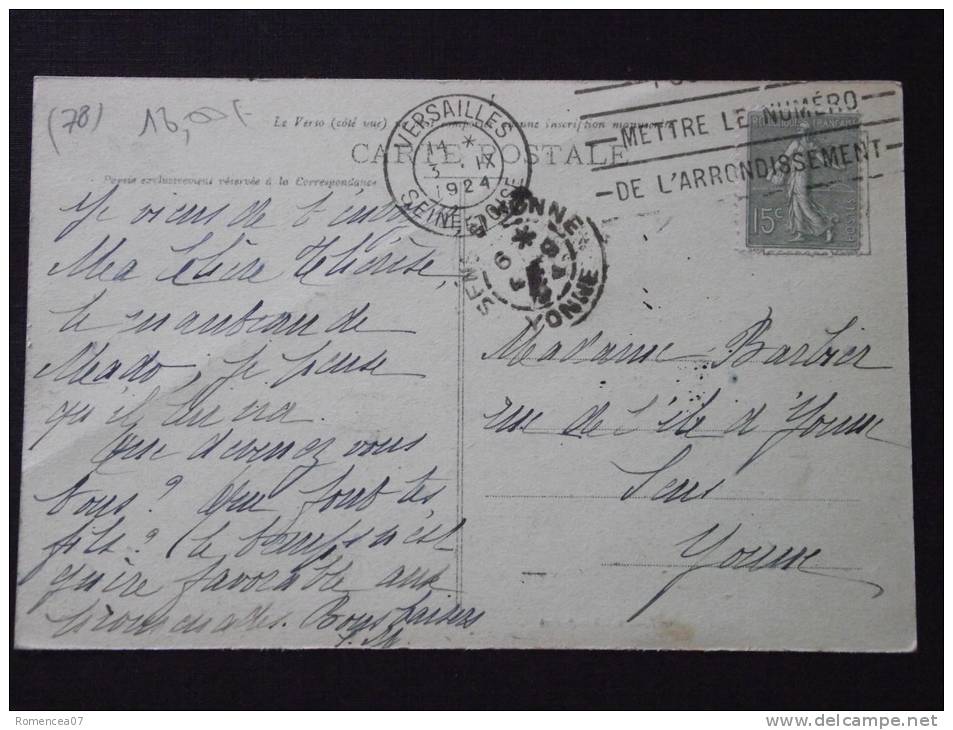 (78) 18,00F
Le Verso (côté vue) inscription manuscrite
CARTE POSTALE
Partie exclusivement réservée à la Correspondance
VERSAILLES
14 *
3 IX
1924
SEINE ET OISE
METTRE LE NUMÉRO
DE L'ARRONDISSEMENT
FRANÇAISE
15c
POSTES
YONNE
Je viens de
Ma Chère Thérèse,
le manteau de
Mado, je pense
qu'il lui ira.
Que devenez vous
tous? Que font tes
fils? Le temps n'est
guère favorable aux
promenades. Bons baisers
Madame Barbier
rue de l'île d'Yonne
Sens
Yonne
Romencea07
delcampe.net